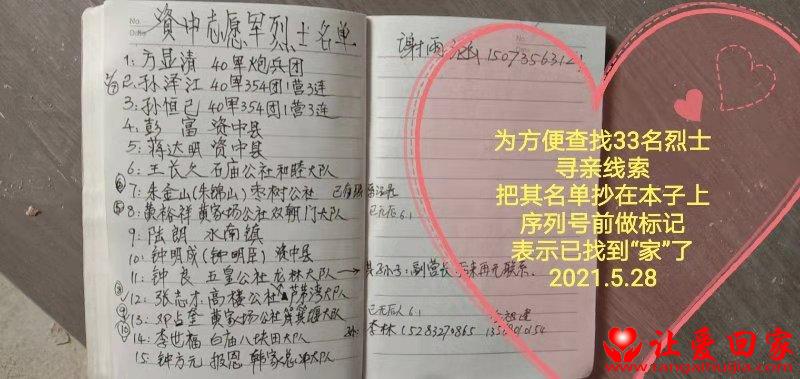 No.
Date
资中志愿军烈士名单
1: 方显清 40军炮兵团
2: 孙泽江 40军354团1营3连
3: 孙恒已 40军354团1营3连
4: 彭 富 资中县
5: 蒋达明 资中县
6: 王长久 石庙公社和睦大队
⑥ 7: 朱金山(朱锦山) 枣树公社
⑤ 8: 黄裕祥 黄家场公社双朝门大队
9: 陆朗 水南镇
10: 钟明成(钟明臣) 资中县
11: 钟良 五皇公社龙林大队→
⑧ 12: 张志才 高楼公社芦茅湾大队
⑨ 13: 邓占奎 黄家场公社大队
⑩ 14: 李世福 白庙八块田大队
15: 钟方元 报恩 韩家冲大队
No.
Date
谢雨 1507356312
已无后 6.1
其孙子: 副营长 后来再无联系.
已无后人 6.1
李林 15283270865
为方便查找33名烈士
寻亲线索
把其名单抄在本子上
序列号前做标记
表示已找到“家”了
2021.5.28
让爱回家
www.rangaihuijia.com